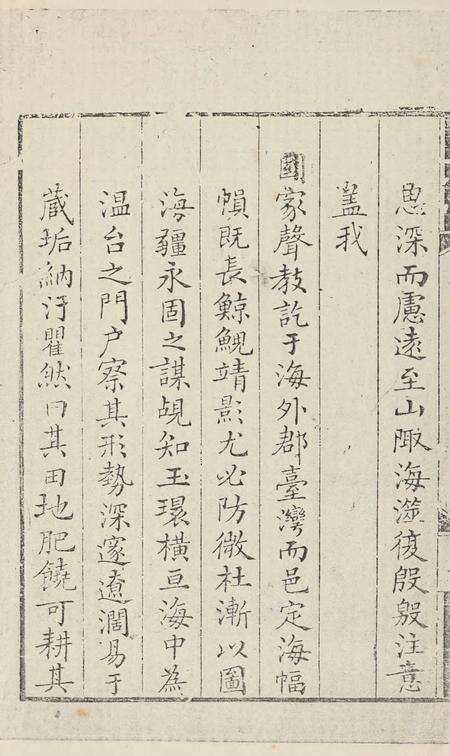 思深而慮遠至山陬海澨復殷殷注意
蓋我
國家聲教訖于海外郡臺灣而邑定海幅
幀既長鯨鯢靖影尤必防微杜漸以圖
海疆永固之謀覘知玉環橫亘海中為
温台之門户察其形勢深邃遼濶易于
藏垢納汙瞿然曰其田地肥饒可耕其